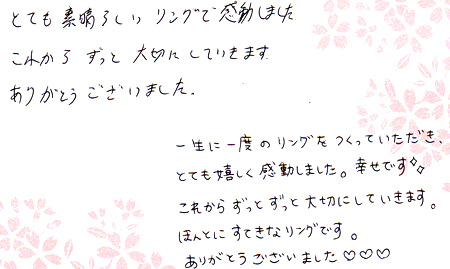 とても 素晴らしい リングで 感動しました
これから ずっと 大切に していきます
ありがとう ございました.
一生に一度のリングをつくっていただき、
とても嬉しく感動しました。幸せです✧✧
これからずっとずっと大切にしていきます。
ほんとにすてきなリングです。
ありがとうございました♡♡♡